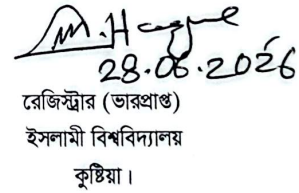 28.06.2026
রেজিস্ট্রার (ভারপ্রাপ্ত)
ইসলামী বিশ্ববিদ্যালয়
কুষ্টিয়া।